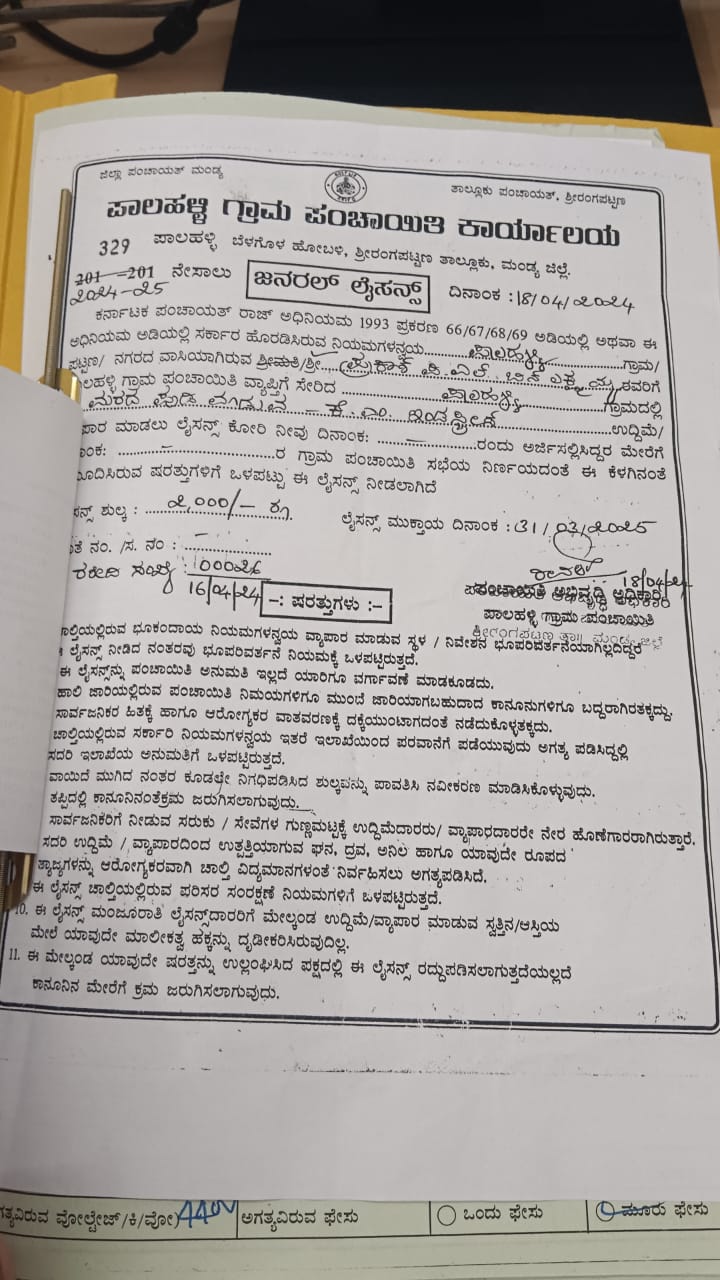 ಜಿಲ್ಲಾ ಪಂಚಾಯತ್ ಮಂಡ್ಯ
ತಾಲ್ಲೂಕು ಪಂಚಾಯತ್, ಶ್ರೀರಂಗಪಟ್ಟಣ
ಪಾಲಹಳ್ಳಿ ಗ್ರಾಮ ಪಂಚಾಯಿತಿ ಕಾರ್ಯಾಲಯ
329 ಪಾಲಹಳ್ಳಿ ಬೆಳಗೊಳ ಹೋಬಳಿ, ಶ್ರೀರಂಗಪಟ್ಟಣ ತಾಲ್ಲೂಕು, ಮಂಡ್ಯ ಜಿಲ್ಲೆ.
201 -201 ನೇಸಾಲು ಜನರಲ್ ಲೈಸನ್ಸ್ ದಿನಾಂಕ :18/04/2024
2024-25
ಕರ್ನಾಟಕ ಪಂಚಾಯತ್ ರಾಜ್ ಅಧಿನಿಯಮ 1993 ಪ್ರಕರಣ 66/67/68/69 ಅಡಿಯಲ್ಲಿ ಅಥವಾ ಈ
ಅಧಿನಿಯಮ ಅಡಿಯಲ್ಲಿ ಸರ್ಕಾರ ಹೊರಡಿಸಿರುವ ನಿಯಮಗಳನ್ವಯ ಪಾಲಹಳ್ಳಿ ಗ್ರಾಮ/
ಪಟ್ಟಣ/ ನಗರದ ವಾಸಿಯಾಗಿರುವ ಶ್ರೀಮತಿ/ಶ್ರೀ. ಪ್ರಕಾಶ್ ಪಿ ಎಲ್ ಬಿನ್ ರವರಿಗೆ
ಾಲಹಳ್ಳಿ ಗ್ರಾಮ ಪಂಚಾಯಿತಿ ವ್ಯಾಪ್ತಿಗೆ ಸೇರಿದ ಪಾಲಹಳ್ಳಿ ಗ್ರಾಮದಲ್ಲಿ
ಮರದ ಪುಡಿ ಮಾಡುವ - ಉದ್ದಿಮೆ/
ಪಾರ ಮಾಡಲು ಲೈಸೆನ್ಸ್ ಕೋರಿ ನೀವು ದಿನಾಂಕ: – ರಂದು ಅರ್ಜಿಸಲ್ಲಿಸಿದ್ದರ ಮೇರೆಗೆ
ಾಂಕ: – ರ ಗ್ರಾಮ ಪಂಚಾಯಿತಿ ಸಭೆಯ ನಿರ್ಣಯದಂತೆ ಈ ಕೆಳಗಿನಂತೆ
ೂದಿಸಿರುವ ಷರತ್ತುಗಳಿಗೆ ಒಳಪಟ್ಟು ಈ ಲೈಸೆನ್ಸ್ ನೀಡಲಾಗಿದೆ
ನ್ಸ್ ಶುಲ್ಕ : 2,000/- ರೂ. ಲೈಸೆನ್ಸ್ ಮುಕ್ತಾಯ ದಿನಾಂಕ :31/03/2025
ತೆ ನಂ. /ಸ. ನಂ : –
ರಶೀದಿ ಸಂಖ್ಯೆ: 100026
16/04/24
18/04/24
-: ಷರತ್ತುಗಳು :-
ಪಂಚಾಯಿತಿ ಅಭಿವೃದ್ಧಿ ಅಧಿಕಾರಿ
ಪಾಲಹಳ್ಳಿ ಗ್ರಾಮ ಪಂಚಾಯಿತಿ
ಶ್ರೀರಂಗಪಟ್ಟಣ ತಾ॥ ಮಂಡ್ಯ ಜಿಲ್ಲೆ
ಾಲ್ತಿಯಲ್ಲಿರುವ ಭೂಕಂದಾಯ ನಿಯಮಗಳನ್ವಯ ವ್ಯಾಪಾರ ಮಾಡುವ ಸ್ಥಳ / ನಿವೇಶನ ಭೂಪರಿವರ್ತನೆಯಾಗಿಲ್ಲದಿದ್ದರೆ
ಲೈಸೆನ್ಸ್ ನೀಡಿದ ನಂತರವು ಭೂಪರಿವರ್ತನೆ ನಿಯಮಕ್ಕೆ ಒಳಪಟ್ಟಿರುತ್ತದೆ.
ಈ ಲೈಸೆನ್ಸ್‌ನ್ನು ಪಂಚಾಯಿತಿ ಅನುಮತಿ ಇಲ್ಲದೆ ಯಾರಿಗೂ ವರ್ಗಾವಣೆ ಮಾಡಕೂಡದು.
ಹಾಲಿ ಜಾರಿಯಲ್ಲಿರುವ ಪಂಚಾಯಿತಿ ನಿಮಯಗಳಿಗೂ ಮುಂದೆ ಜಾರಿಯಾಗಬಹುದಾದ ಕಾನೂನುಗಳಿಗೂ ಬದ್ದರಾಗಿರತಕ್ಕದ್ದು.
ಸಾರ್ವಜನಿಕರ ಹಿತಕ್ಕೆ ಹಾಗೂ ಆರೋಗ್ಯಕರ ವಾತವರಣಕ್ಕೆ ದಕ್ಕೆಯುಂಟಾಗದಂತೆ ನಡೆದುಕೊಳ್ಳತಕ್ಕದು.
ಚಾಲ್ತಿಯಲ್ಲಿರುವ ಸರ್ಕಾರಿ ನಿಯಮಗಳನ್ವಯ ಇತರೆ ಇಲಾಖೆಯಿಂದ ಪರವಾನಗೆ ಪಡೆಯುವುದು ಅಗತ್ಯ ಪಡಿಸಿದ್ದಲ್ಲಿ
ಸದರಿ ಇಲಾಖೆಯ ಅನುಮತಿಗೆ ಒಳಪಟ್ಟಿರುತ್ತದೆ.
ವಾಯಿದೆ ಮುಗಿದ ನಂತರ ಕೂಡಲೇ ನಿಗಧಿಪಡಿಸಿದ ಶುಲ್ಕವನ್ನು ಪಾವತಿಸಿ ನವೀಕರಣ ಮಾಡಿಸಿಕೊಳ್ಳುವುದು.
ತಪ್ಪಿದಲ್ಲಿ ಕಾನೂನಿನಂತೆಕ್ರಮ ಜರುಗಿಸಲಾಗುವುದು.
ಸಾರ್ವಜನಿಕರಿಗೆ ನೀಡುವ ಸರುಕು / ಸೇವೆಗಳ ಗುಣ್ಣಮಟ್ಟಕ್ಕೆ ಉದ್ದಿಮೆದಾರರು/ ವ್ಯಾಪಾರದಾರರೇ ನೇರ ಹೊಣೆಗಾರರಾಗಿರುತ್ತಾರೆ.
ಸದರಿ ಉದ್ದಿಮೆ / ವ್ಯಾಪಾರದಿಂದ ಉತ್ಪತ್ತಿಯಾಗುವ ಘನ, ದ್ರವ, ಅನಿಲ ಹಾಗೂ ಯಾವುದೇ ರೂಪದ
ತ್ಯಾಜ್ಯಗಳನ್ನು ಆರೋಗ್ಯಕರವಾಗಿ ಚಾಲ್ತಿ ವಿದ್ಯಮಾನಗಳಂತೆ ನಿರ್ವಹಿಸಲು ಅಗತ್ಯಪಡಿಸಿದೆ.
ಈ ಲೈಸನ್ಸ್ ಚಾಲ್ತಿಯಲ್ಲಿರುವ ಪರಿಸರ ಸಂರಕ್ಷಣೆ ನಿಯಮಗಳಿಗೆ ಒಳಪಟ್ಟಿರುತ್ತದೆ.
10. ಈ ಲೈಸನ್ಸ್ ಮಂಜೂರಾತಿ ಲೈಸನ್ಸ್‌ದಾರರಿಗೆ ಮೇಲ್ಕಂಡ ಉದ್ದಿಮೆ/ವ್ಯಾಪಾರ ಮಾಡುವ ಸ್ವತ್ತಿನ/ಆಸ್ತಿಯ
ಮೇಲೆ ಯಾವುದೇ ಮಾಲೀಕತ್ವ ಹಕ್ಕನ್ನು ದೃಢೀಕರಿಸಿರುವುದಿಲ್ಲ.
11. ಈ ಮೇಲ್ಕಂಡ ಯಾವುದೇ ಷರತ್ತನ್ನು ಉಲ್ಲಂಘಿಸಿದ ಪಕ್ಷದಲ್ಲಿ ಈ ಲೈಸನ್ಸ್ ರದ್ದುಪಡಿಸಲಾಗುತ್ತದೆಯಲ್ಲದೆ
ಕಾನೂನಿನ ಮೇರೆಗೆ ಕ್ರಮ ಜರುಗಿಸಲಾಗುವುದು.
ಗತ್ಯವಿರುವ ವೋಲ್ಟೇಜ್/ಕಿ/ವೋ) 440V ಅಗತ್ಯವಿರುವ ಫೇಸು ಒಂದು ಫೇಸು ಮೂರು ಫೇಸು